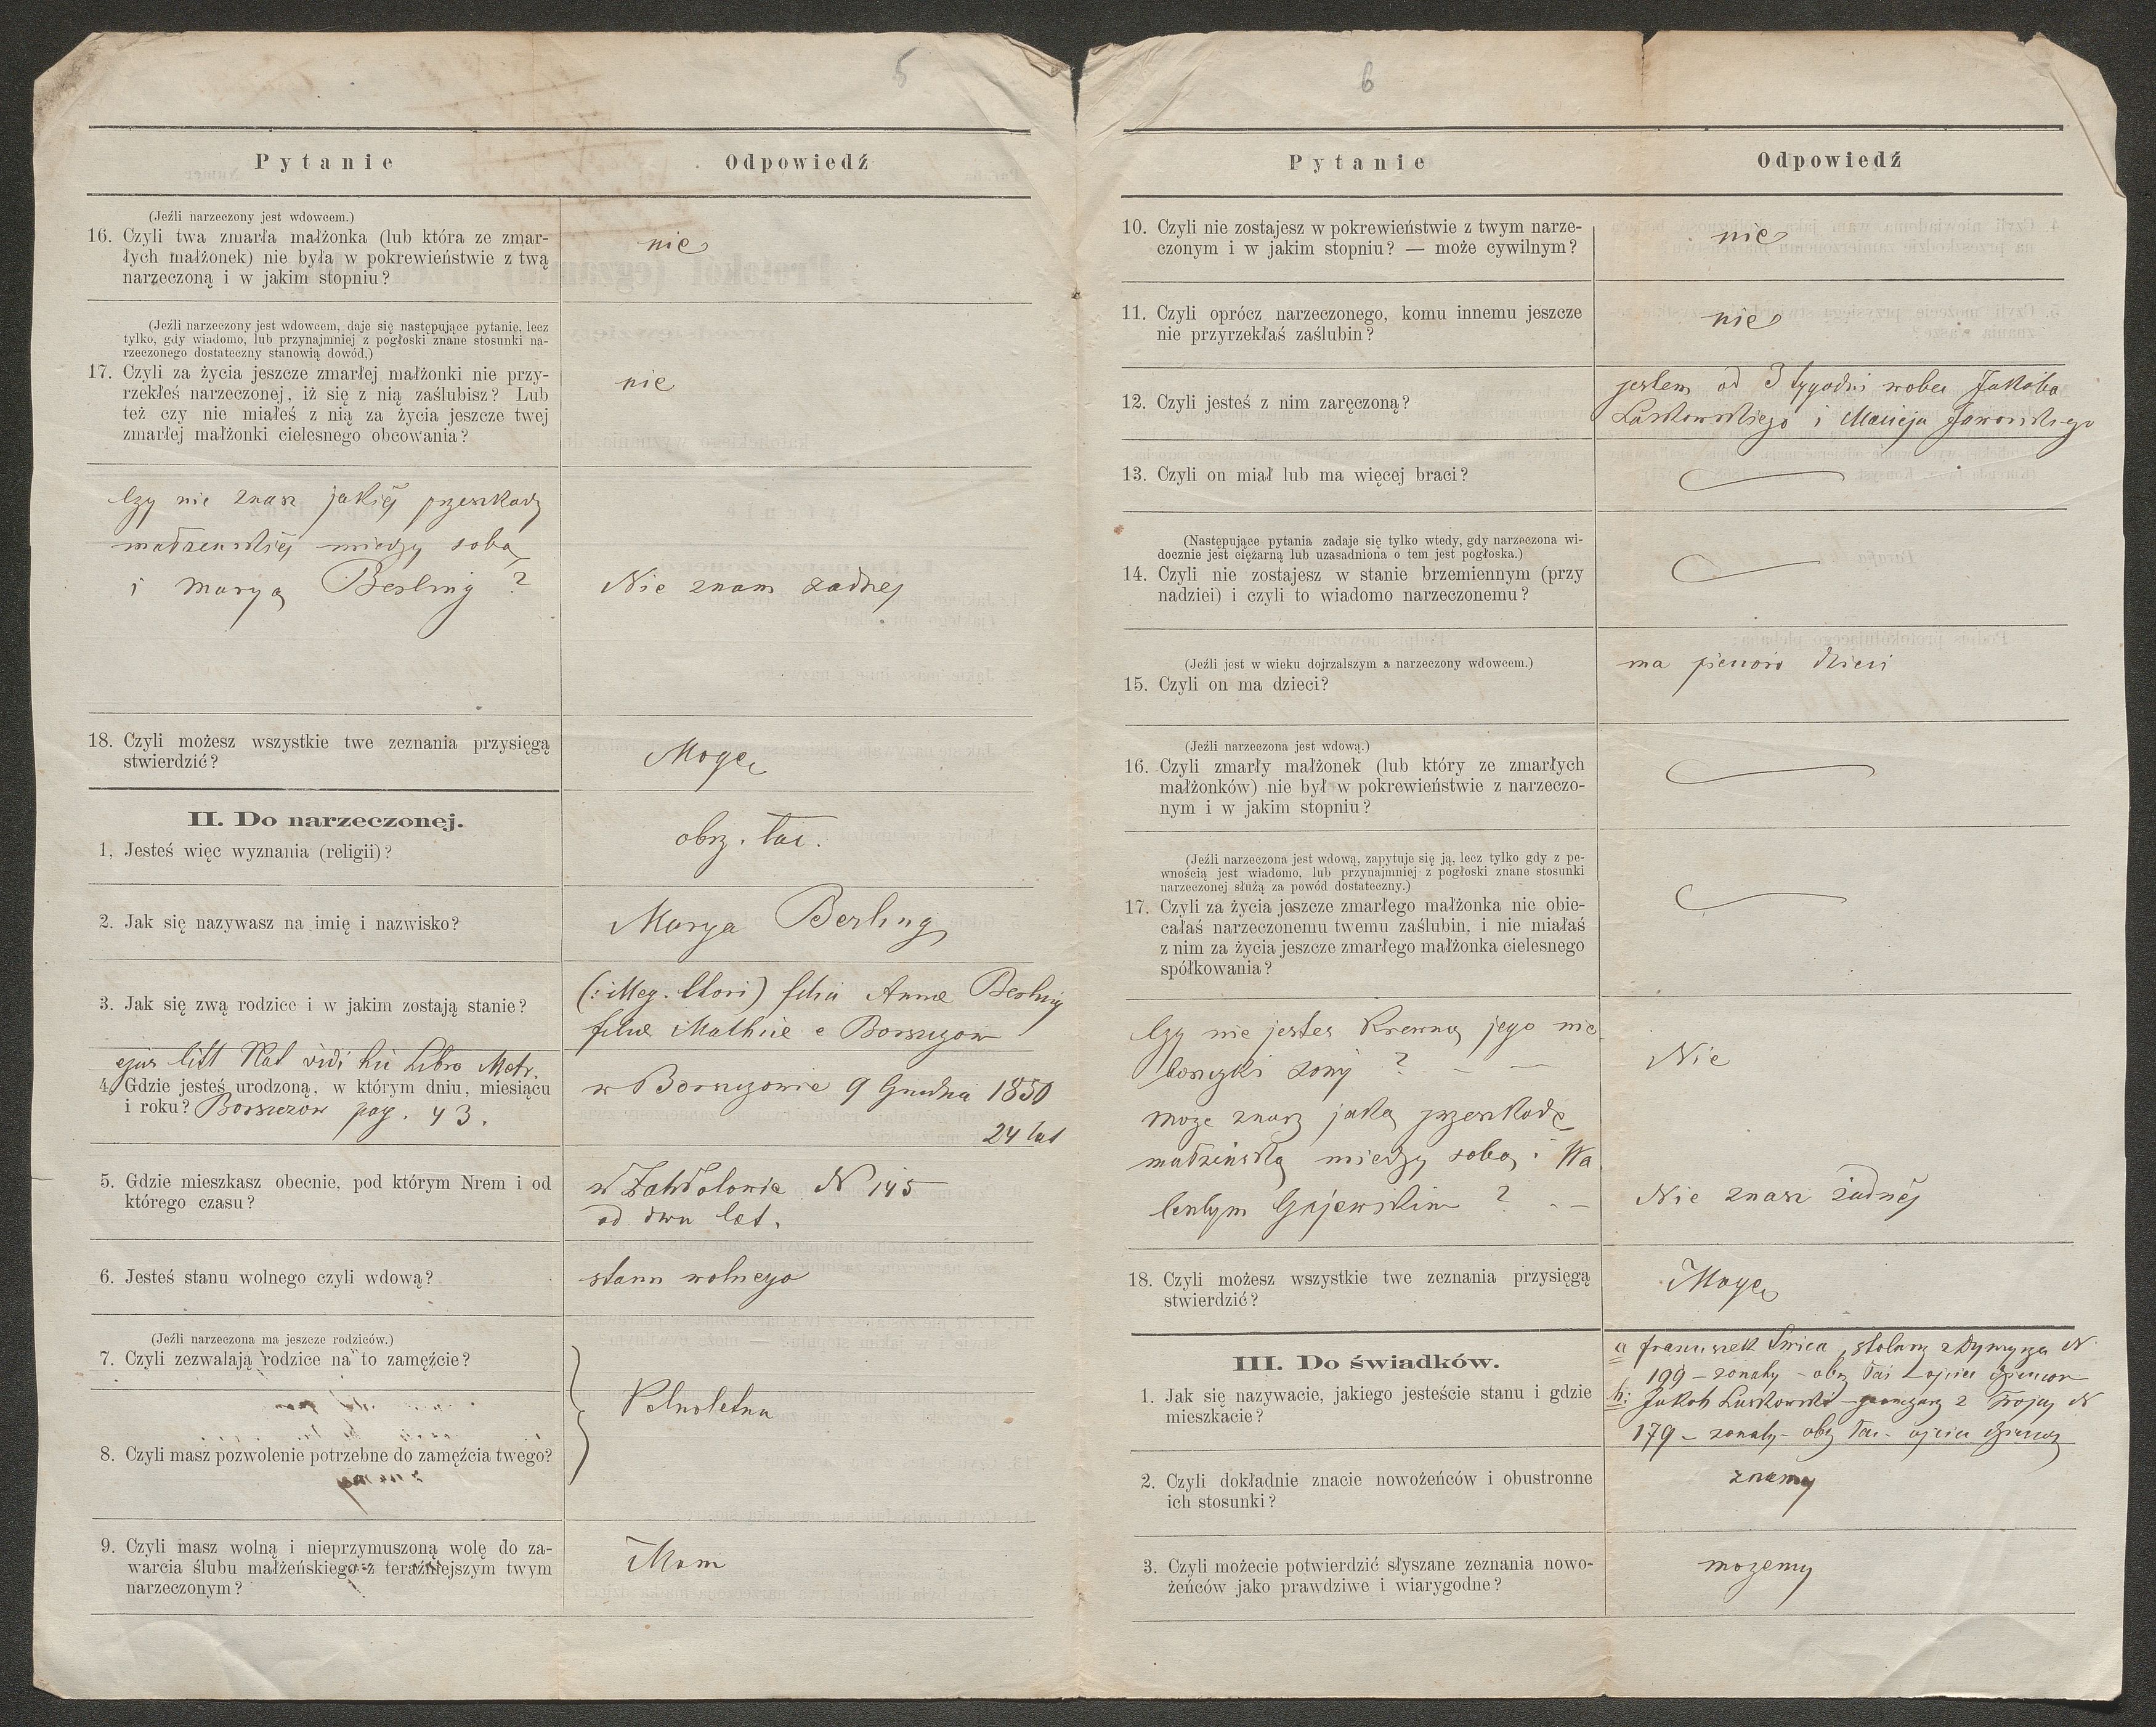 5
Pytanie
Odpowiedź
(Jeźli narzeczony jest wdowcem.)
16. Czyli twa zmarła małżonka (lub która ze zmar-
łych małżonek) nie była w pokrewieństwie z twą
narzeczoną i w jakim stopniu?
nie
(Jeźli narzeczony jest wdowcem, daje się następujące pytanie, lecz
tylko, gdy wiadomo, lub przynajmniej z pogłoski znane stosunki na-
rzeczonego dostateczny stanowią dowód,)
17. Czyli za życia jeszcze zmarłej małżonki nie przy-
rzekłeś narzeczonej, iż się z nią zaślubisz? Lub
też czy nie miałeś z nią za życia jeszcze twej
zmarłej małżonki cielesnego obcowania?
nie
Czy nie znasz jakiéj przeszkody
małżenskiéj miedzy sobą
i Maryą Berling?
Nie znam zadnej
18. Czyli możesz wszystkie twe zeznania przysięgą
stwierdzić?
Mogę
II. Do narzeczonej.
1. Jesteś więc wyznania (religii)?
obrz. łac.
2. Jak się nazywasz na imię i nazwisko?
Marya Berling
3. Jak się zwą rodzice i w jakim zostają stanie?
(: illeg. thori) filia Annæ Berling
filiæ Mathiæ e Borszczow
ejus litt Nat vidi hic Libro Metr.
4. Gdzie jesteś urodzoną, w którym dniu, miesiącu
i roku? Borszczow pag. 43.
w Borszczowie 9 Grudnia 1850
24 lat
5. Gdzie mieszkasz obecnie, pod którym Nrem i od
którego czasu?
N 145
od dwu lat.
6. Jesteś stanu wolnego czyli wdową?
stanu wolnego
(Jeźli narzeczona ma jeszcze rodziców.)
7. Czyli zezwalają rodzice na to zamęźcie?
Pełnoletna
8. Czyli masz pozwolenie potrzebne do zamęźcia twego?
9. Czyli masz wolną i nieprzymuszoną wolę do za-
warcia ślubu małżeńskiego z teraźniejszym twym
narzeczonym?
Mam
6
Pytanie
Odpowiedź
10. Czyli nie zostajesz w pokrewieństwie z twym narze-
czonym i w jakim stopniu? — może cywilnym?
nie
11. Czyli oprócz narzeczonego, komu innemu jeszcze
nie przyrzekłaś zaślubin?
nie
12. Czyli jesteś z nim zaręczoną?
jestem od 3 tygodni wobec Jakóba
Luszkowskiego i Macieja Jaworskiego
13. Czyli on miał lub ma więcej braci?
(Następujące pytania zadaje się tylko wtedy, gdy narzeczona wi-
docznie jest ciężarną lub uzasadniona o tem jest pogłoska.)
14. Czyli nie zostajesz w stanie brzemiennym (przy
nadziei) i czyli to wiadomo narzeczonemu?
(Jeźli jest w wieku dojrzalszym a narzeczony wdowcem.)
15. Czyli on ma dzieci?
ma piecioro dzieci
(Jeźli narzeczona jest wdową.)
16. Czyli zmarły małżonek (lub który ze zmarłych
małżonków) nie był w pokrewieństwie z narzeczo-
nym i w jakim stopniu?
(Jeźli narzeczona jest wdową, zapytuje się ją, lecz tylko gdy z pe-
wnością jest wiadomo, lub przynajmniej z pogłoski znane stosunki
narzeczonej służą za powód dostateczny.)
17. Czyli za życia jeszcze zmarłego małżonka nie obie-
całaś narzeczonemu twemu zaślubin, i nie miałaś
z nim za życia jeszcze zmarłego małżonka cielesnego
spółkowania?
Czy nie jestes krewną jego nie
boszczki żony? — —
Nie
moze znasz jaką przeszkodę
małzeńską miedzy sobą i Wa
lentym Gajewskim?
Nie znasz żadnéj
18. Czyli możesz wszystkie twe zeznania przysięgą
stwierdzić?
Mogę
III. Do świadków.
1. Jak się nazywacie, jakiego jesteście stanu i gdzie
mieszkacie?
a Franciszek stolarz N
199 – zonaty – obrz łac
b: Jakob Luszkowski – z Troicy N
179 – zonaty – obrz łac – ojciec
2. Czyli dokładnie znacie nowożeńców i obustronne
ich stosunki?
znamy
3. Czyli możecie potwierdzić słyszane zeznania nowo-
żeńców jako prawdziwe i wiarygodne?
mozemy